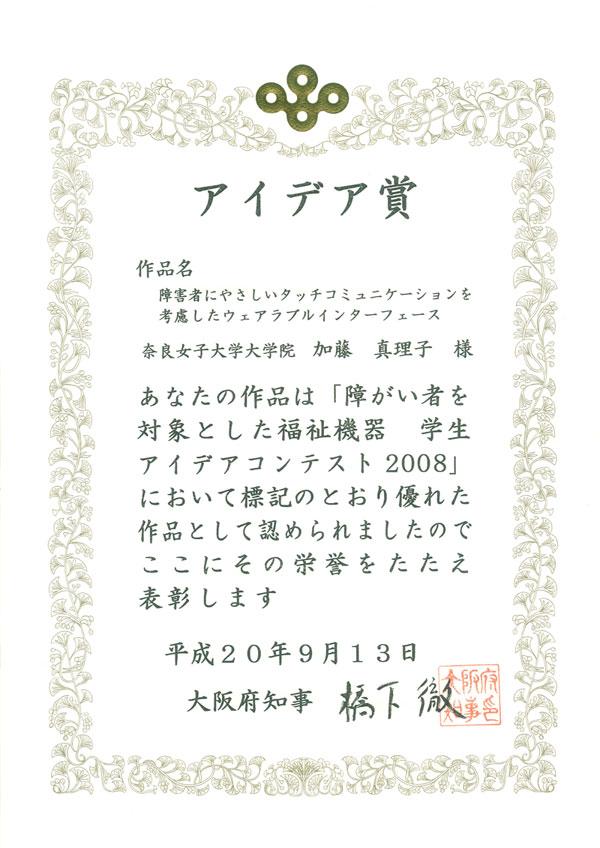 アイデア賞
作品名
障害者にやさしいタッチコミュニケーションを
考慮したウェアラブルインターフェース
奈良女子大学大学院 加藤 真理子 様
あなたの作品は「障がい者を
対象とした福祉機器 学生
アイデアコンテスト2008」
において標記のとおり優れた
作品として認められましたので
ここにその栄誉をたたえ
表彰します
平成20年9月13日
大阪府知事 橋下徹
大阪府
知事印